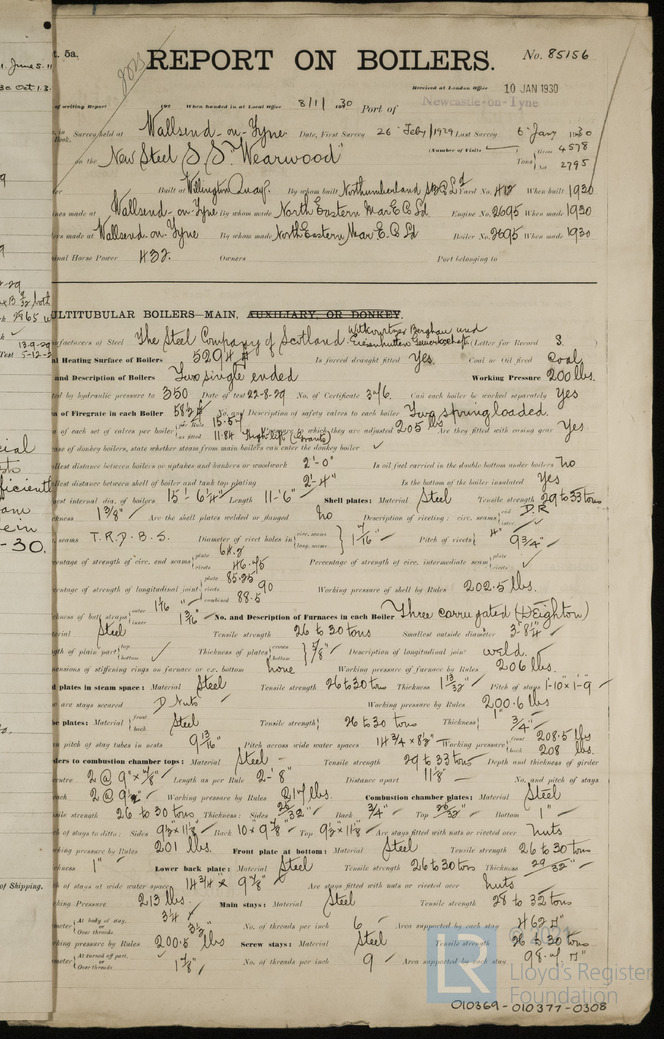 t. 5a.
REPORT ON BOILERS.
No. 85156
Received at London Office 10 JAN 1930
of writing Report 192 When handed in at Local Office 8/1/1930 Port of Newcastle-on-Tyne
Survey held at Wallsend-on-Tyne Date, First Survey 26 Feby/1929 Last Survey 6 Jany 1930
on the New Steel S.S. "Wearwood" (Number of Visits Tons Gross 4578 Net 2795
Built at Willington Quay. By whom built Northumberland SB Co Ld Yard No. 412 When built 1930
made at Wallsend-on-Tyne By whom made North Eastern Mar E. Co Ld Engine No. 2695 When made 1930
made at Wallsend-on-Tyne By whom made North Eastern Mar E. Co Ld Boiler No. 2695 When made 1930
nal Horse Power 432. Owners Port belonging to
ULTITUBULAR BOILERS—MAIN, AUXILIARY, OR DONKEY.
nufacturers of Steel The Steel Company of Scotland Witkowitzer Bergbau und Eisenhutten Gewerkschaft (Letter for Record S.
al Heating Surface of Boilers 5294 Is forced draught fitted Yes. Coal or Oil fired Coal
and Description of Boilers Two single ended Working Pressure 200 lbs.
ted by hydraulic pressure to 350 Date of test 22-8-29 No. of Certificate 376. Can each boiler be worked separately Yes
of Firegrate in each Boiler 58½ No. and Description of safety valves to each boiler Two spring loaded.
of each set of valves per boiler 15.57 11.84 High lift Pressure to which they are adjusted 205 lbs Are they fitted with easing gear Yes
case of donkey boilers, state whether steam from main boilers can enter the donkey boiler ✓
allest distance between boilers or uptakes and bunkers or woodwork 2'-0" Is oil fuel carried in the double bottom under boilers no
allest distance between shell of boiler and tank top plating 2'-4" Is the bottom of the boiler insulated Yes
est internal dia. of boilers 15'-6¼" Length 11'-6" Shell plates: Material Steel Tensile strength 29 to 33 tons
ckness 1 3/8" Are the shell plates welded or flanged no Description of riveting: circ. seams end D.R
seams T.R.D.B.S. Diameter of rivet holes in circ. seams long. seams 1 7/16" Pitch of rivets 4" 9 3/4"
centage of strength of circ. end seams plate 64.2 rivets 46.45 Percentage of strength of circ. intermediate seam plate rivets ✓
centage of strength of longitudinal joint plate 85.25 rivets 90 combined 88.5 Working pressure of shell by Rules 202.5 lbs.
kness of butt straps outer 1 1/16" inner 1 3/16" No. and Description of Furnaces in each Boiler Three corrugated (Deighton)
terial Steel Tensile strength 26 to 30 tons Smallest outside diameter 3'-8¼"
gth of plain part top bottom ✓ Thickness of plates crown bottom 5/8" Description of longitudinal joint weld.
mensions of stiffening rings on furnace or c.c. bottom none Working pressure of furnace by Rules 206 lbs.
d plates in steam space: Material Steel Tensile strength 26 to 30 tons Thickness 1 13/32" Pitch of stays 1'-10" x 1'-9"
are stays secured D. Nuts Working pressure by Rules 200.6 lbs
be plates: Material front back Steel Tensile strength 26 to 30 tons Thickness 1" 3/4"
n pitch of stay tubes in nests 9 13/16" Pitch across wide water spaces 14 3/4 x 8½" Working pressure front 208.5 lbs back 208 lbs.
ders to combustion chamber tops: Material Steel Tensile strength 29 to 33 tons Depth and thickness of girder
centre 2 @ 9" x Length as per Rule 2'-8" Distance apart 11 1/8" No. and pitch of stays
ach 2 @ 9½" Working pressure by Rules 217 lbs. Combustion chamber plates: Material Steel
sile strength 26 to 30 tons Thickness: Sides 25/32" Back 3/4" Top 25/32" Bottom 1"
ch of stays to ditto: Sides 9½ x 11 1/8 Back 10 x 9 7/8" Top 9½ x 11 1/8 Are stays fitted with nuts or riveted over nuts
king pressure by Rules 201 lbs. Front plate at bottom: Material Steel Tensile strength 26 to 30 tons
ckness 1" Lower back plate: Material Steel Tensile strength 26 to 30 tons Thickness 29/32"
h of stays at wide water space 14 3/4 x 9 7/8" Are stays fitted with nuts or riveted over nuts
king Pressure 213 lbs. Main stays: Material Steel Tensile strength 28 to 32 tons
meter At body of stay, or Over threads 3¼ 3½" No. of threads per inch 6 Area supported by each stay 462
king pressure by Rules 200.5 lbs Screw stays: Material Steel Tensile strength 26 to 30 tons
meter At turned off part, or Over threads 1 7/8" No. of threads per inch 9 Area supported by each stay 98.
© 2021
LR
Lloyd's Register
Foundation
010369-010377-0308
of Shipping.